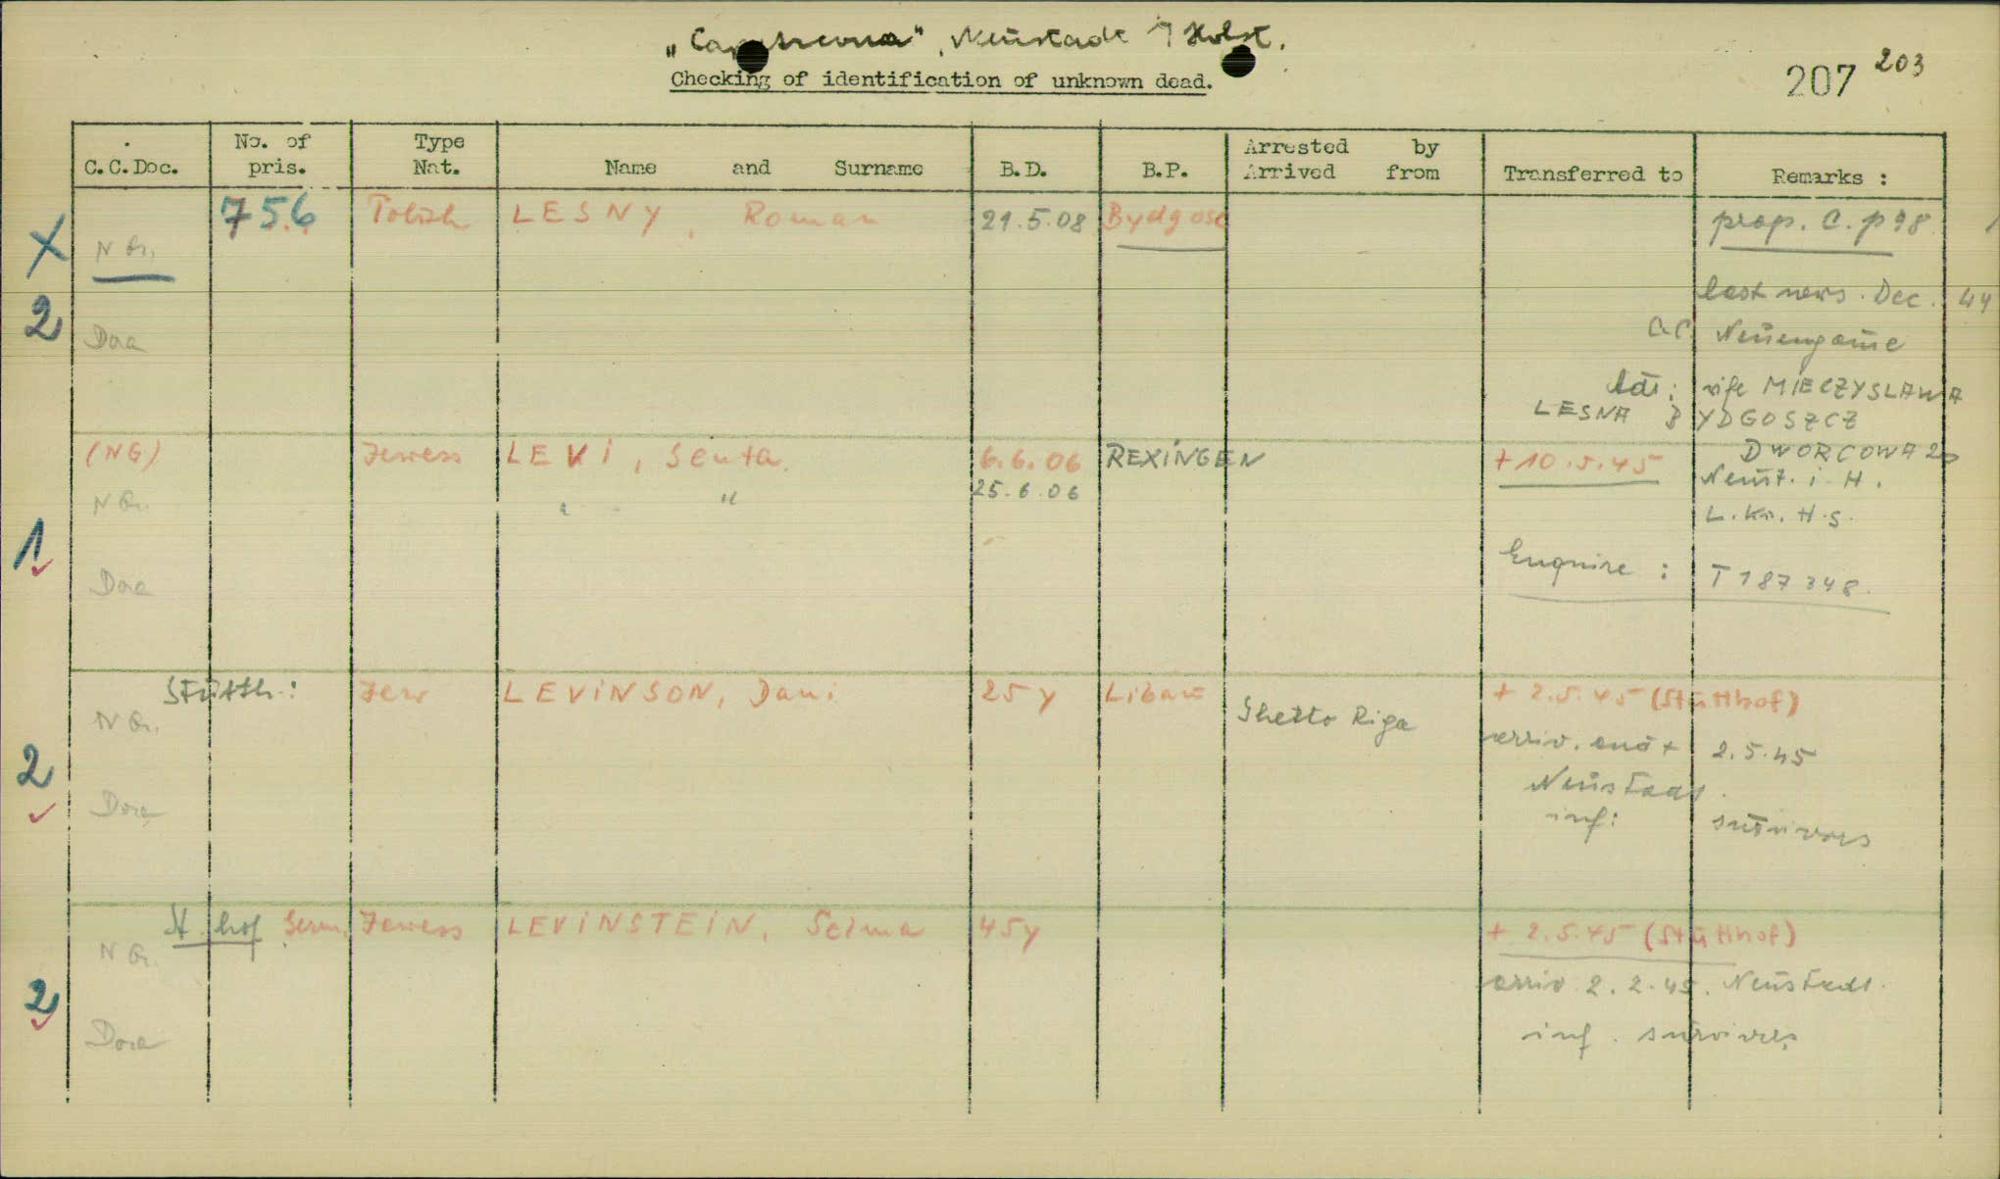 "Cap Arcona", Neustadt i Holst.
Checking of identification of unknown dead.
207 203
C.C.Doc. No. of pris. Type Nat. Name and Surname B.D. B.P. Arrested by Arrived from Transferred to Remarks :
X 756 Polish LESNY, Roman 21.5.08 Bydgosc prop. C. p 98
N Gr.
last news. Dec. 44
2 Dora CC Neuengame
wife MIECZYSLAWA
LESNA BYDGOSZCZ
DWORCOWA 20
(NG) Jewess LEVI, Senta. 6.6.06 REXINGEN + 10.5.45 Neust. i. H.
N Gr. " " 25.6.06
L. Kr. H.S.
1 Enquire : T 187 348.
Dora
Stutth.: Jew LEVINSON, Dani 25 y Libau + 2.5.45 (Stutthof)
N Gr. Ghetto Riga arriv. and + 2.5.45
2 Neustadt.
Dora inf: survivors
St.hof Germ. Jewess LEVINSTEIN, Selma 45y + 2.5.45 (Stutthof)
N Gr.
2 arriv 2.2.45. Neustadt.
Dora inf. survivers